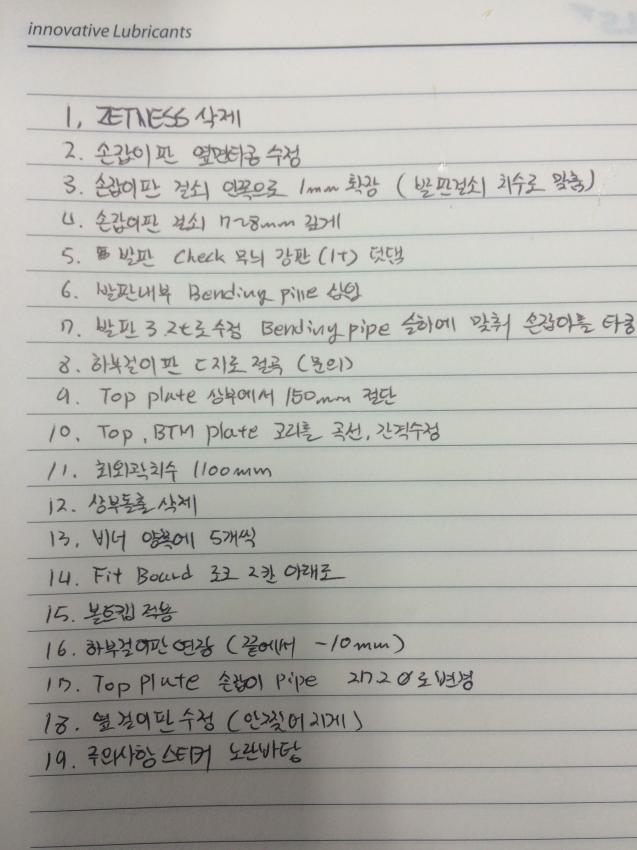 innovative Lubricants
1, ZETNESS 삭제
2. 손잡이판 옆면타공 수정
3. 손잡이판 걸쇠 안쪽으로 1mm 확장 (발판걸쇠 치수로 맞춤)
4. 손잡이판 걸쇠 7~8mm 길게
5. 발판 Check 무늬 강판(1t) 덧댐
6. 발판내부 Bending pipe 삽입
7. 발판 3.2t로수정 Bending pipe 슬하에 맞춰 손잡이를 타공
8. 하부걸이판 ㄷ자로 절곡 (문의)
9. Top plate 상부에서 150mm 절단
10, Top, BTM plate 고리를 곡선, 간격수정
11. 최외곽치수 1100mm
12. 상부돌출 삭제
13, 비너 양쪽에 5개씩
14. Fit Board 로고 2칸 아래로
15. 볼트캡 적용
16. 하부걸이판 연장 (끝에서 -10mm)
17. Top plate 손잡이 pipe 27.2Ø로변경
18. 옆걸이판수정 (안찢어지게)
19. 주의사항스티커 노란바탕